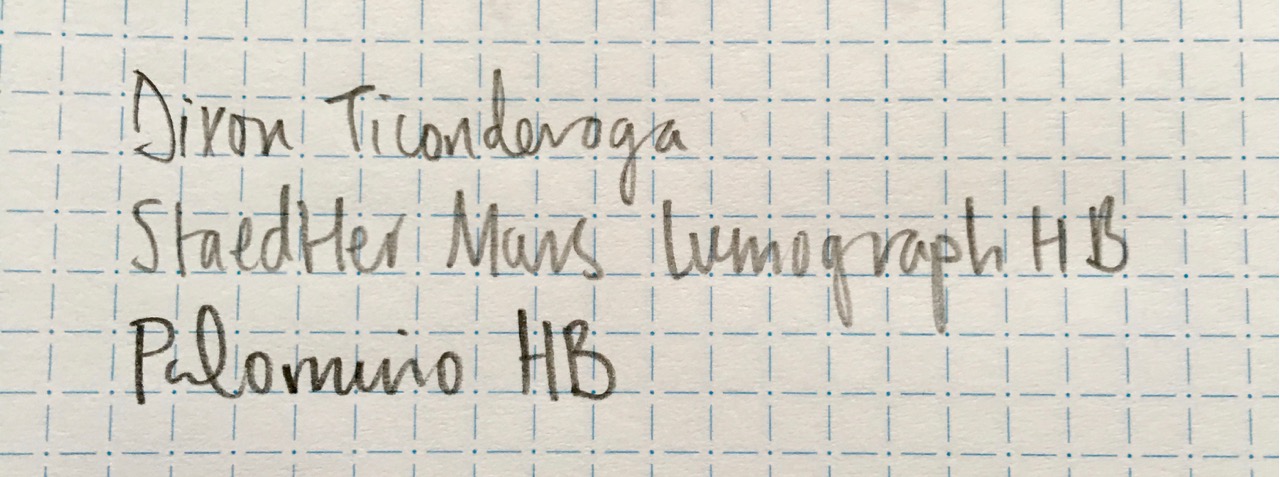 Dixon Ticonderoga
Staedtler Mars Lumograph HB
Palomino HB